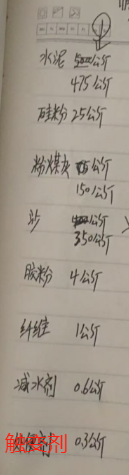 水泥 500公斤
475公斤
硅粉 25公斤
粉煤灰 公斤
150公斤
沙 公斤
350公斤
胶粉 4公斤
纤维 1公斤
减水剂 0.6公斤
触变剂 0.3公斤